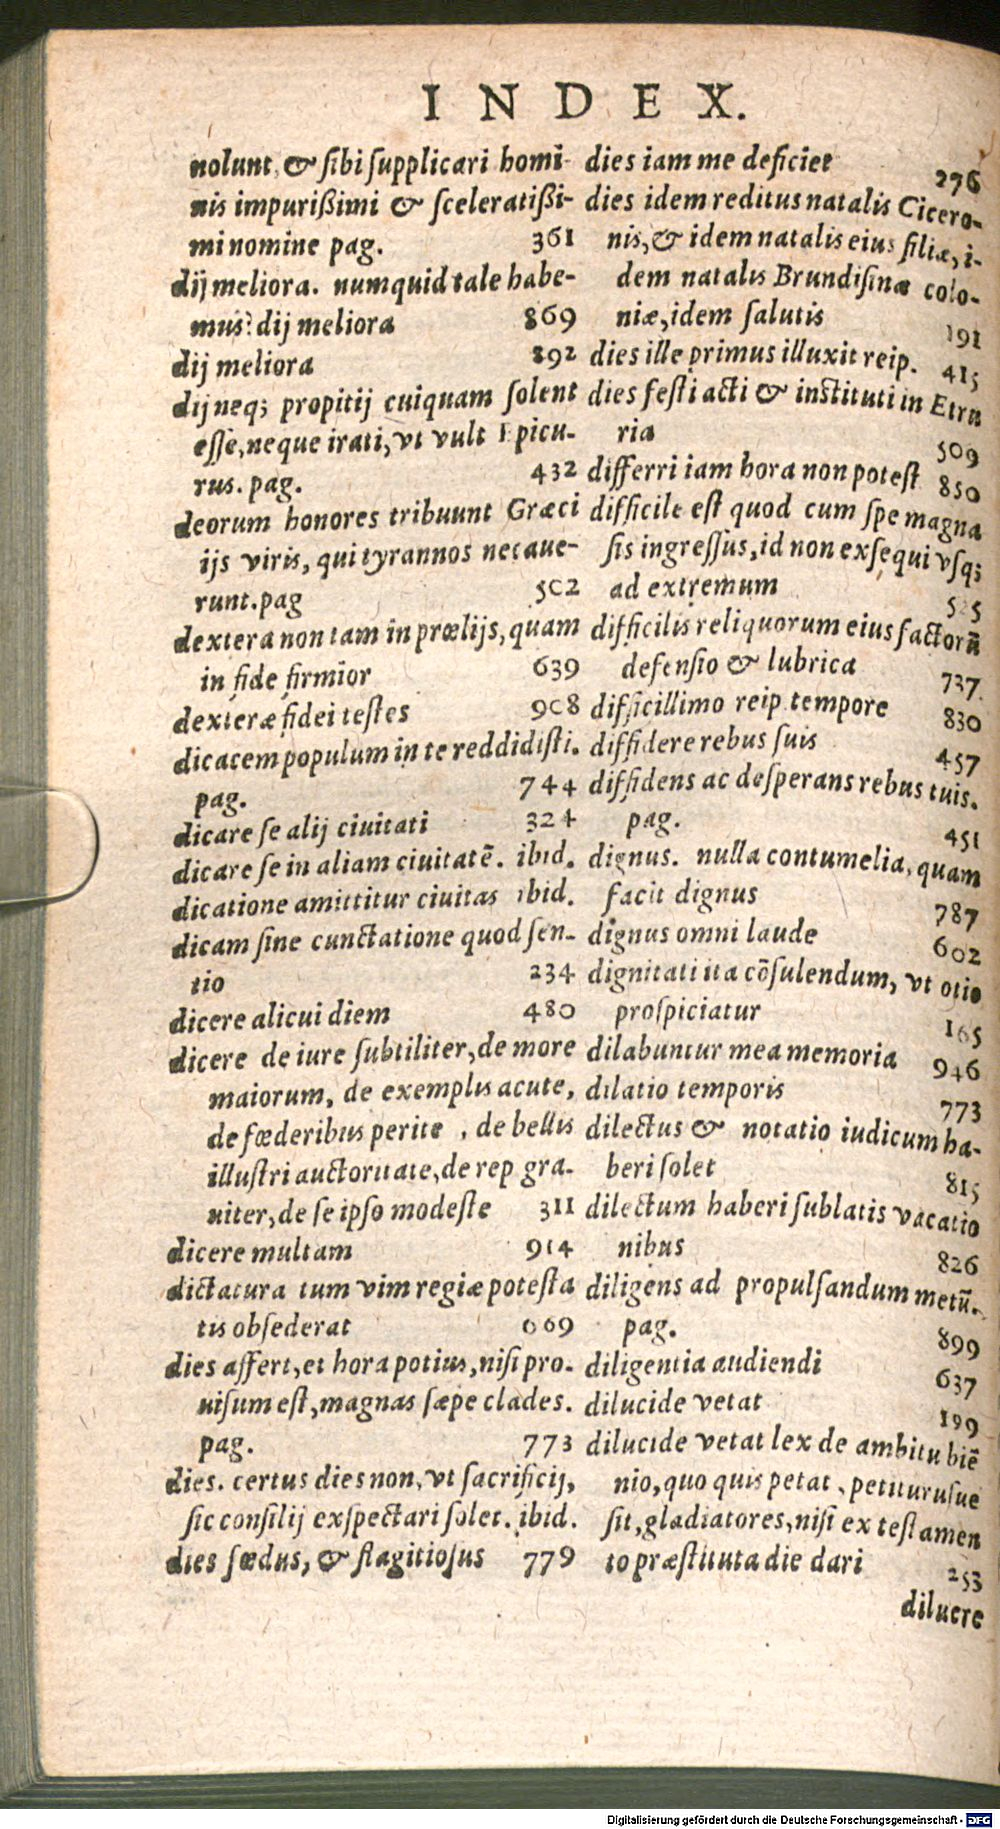 INDEX.
nolunt, & sibi supplicari homi-
nis impurißimi & sceleratißi-
mi nomine pag. 361
dij meliora. numquid tale habe-
mus? dij meliora 869
dij meliora 892
dij neq; propitij cuiquam solent
esse, neque irati, vt vult Epicu-
rus. pag. 432
deorum honores tribuunt Græci
ijs viris, qui tyrannos necaue-
runt. pag 502
dextera non tam in prœlijs, quam
in fide firmior 639
dexteræ fidei testes 908
dicacem populum in te reddidisti.
pag. 744
dicare se alij ciuitati 324
dicare se in aliam ciuitatē. ibid.
dicatione amittitur ciuitas ibid.
dicam sine cunctatione quod sen-
tio 234
dicere alicui diem 480
dicere de iure subtiliter, de more
maiorum, de exemplis acute,
de fœderibus perite, de bellis
illustri auctoritate, de rep gra-
uiter, de se ipso modeste 311
dicere multam 914
dictatura tum vim regiæ potesta
tis obsederat 669
dies affert, et hora potius, nisi pro-
uisum est, magnas sæpe clades.
pag. 773
dies. certus dies non, vt sacrificij,
sic consilij exspectari solet. ibid.
dies fœdus, & flagitiosus 779
dies iam me deficiet 276
dies idem reditus natalis Cicero-
nis, & idem natalis eius filiæ, i-
dem natalis Brundisinæ colo-
niæ, idem salutis 191
dies ille primus illuxit reip. 415
dies festi acti & instituti in Etru
ria 509
differri iam hora non potest 850
difficile est quod cum spe magna
sis ingressus, id non exsequi vsq;
ad extremum 525
difficilis reliquorum eius factorū
defensio & lubrica 737
difficillimo reip. tempore 830
diffidere rebus suis 457
diffidens ac desperans rebus tuis.
pag. 451
dignus. nulla contumelia, quam
facit dignus 787
dignus omni laude 602
dignitati ita cōsulendum, vt otio
prospiciatur 165
dilabuntur mea memoria 946
dilatio temporis 773
dilectus & notatio iudicum ha-
beri solet 815
dilectum haberi sublatis vacatio
nibus 826
diligens ad propulsandum metū.
pag. 899
diligentia audiendi 637
dilucide vetat 199
dilucide vetat lex de ambitu biē
nio, quo quis petat, petiturusue
sit, gladiatores, nisi ex testamen
to præstituta die dari 253
diluere
Digitalisierung gefördert durch die Deutsche Forschungsgemeinschaft - DFG